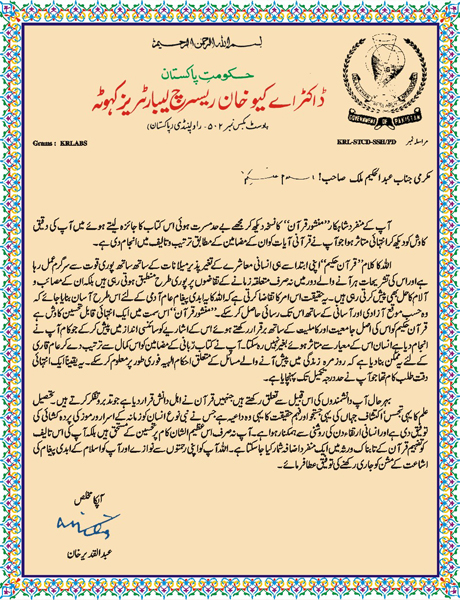 بسم اللہ الرحمن الرحیم
حکومتِ پاکستان
ڈاکٹر اے کیو خان ریسرچ لیبارٹریز کہوٹہ
پوسٹ بکس نمبر ۵۰۲۔ راولپنڈی (پاکستان)
GOVERNMENT OF PAKISTAN
Grams : KRLABS
KRL-STCD-SSH/PD مراسلہ نمبر
مکرمی جناب عبدالحکیم ملک صاحب! السلام علیکم
آپ کے منفرد شاہکار ”منشور قرآن“ کا نسخہ دیکھ کر مجھے بے حد مسرت ہوئی اس کتاب کا جائزہ لیتے ہوئے میں آپ کی دقیق
کاوش کو دیکھ کر انتہائی متاثر ہوا جو آپ نے قرآنی آیات کو ان کے مضامین کے مطابق ترتیب و تالیف میں انجام دی ہے۔
اللہ کا کلام ”قرآن حکیم“ اپنی ابتدا سے ہی انسانی معاشرے کے تغیر پذیر میلانات کے ساتھ ساتھ پوری قوت سے سرگرم عمل رہا
ہے اور اس کی تشریحات ہر آنے والے دور میں نہ صرف متعلقہ زمانے کے تقاضوں پر پوری طرح منطبق ہوتی رہی ہیں بلکہ ان کے مصائب و
آلام کا حل بھی پیش کرتی رہی ہیں۔ یہ حقیقت اس امر کا تقاضا کرتی ہے کہ اللہ کا یہ ابدی پیغام عام آدمی کے لئے اس طرح آسان بنایا جائے کہ
وہ حسب موقع آزادی اور آسانی کے ساتھ اس تک رسائی حاصل کر سکے۔ ”منشور قرآن“ اس سمت میں ایک انتہائی قابل تحسین کاوش ہے
قرآن حکیم کو اس کی اصل جامعیت اور کاملیت کے ساتھ برقرار رکھتے ہوئے اس کے اشاریے کو سائنسی انداز میں پیش کر کے جو کام آپ نے
انجام دیا ہے انسان اس کے معیار سے متاثر ہوئے بغیر نہیں رہ سکتا۔ آپ نے کتاب ربانی کے مضامین کو اس کمال سے ترتیب دے کر عام قاری
کے لئے یہ ممکن بنا دیا ہے کہ روز مرہ زندگی میں پیش آنے والے مسائل کے متعلق احکام الٰہیہ فوری طور پر معلوم کر سکے۔ یہ یقیناً ایک انتہائی
دقت طلب کام تھا جو آپ نے حد درجہ تکمیل تک پہنچایا ہے۔
بہر حال آپ دانشمندوں کی اس قبیل سے تعلق رکھتے ہیں جنہیں قرآن نے اہل دانش قرار دیا ہے جو تدبر و تفکر کرتے ہیں۔ تحصیل
علم کا یہی تجسس اکتشاف جہاں کی یہی جستجو اور فہم حقیقت کا یہی وہ داعیہ ہے جس نے بنی نوع انسان کو زمانہ کے اسرار و رموز کی پردہ کشائی کی
توفیق دی ہے اور انسانی ارتقاء دن کی روشنی سے ہمکنار ہوا ہے۔ آپ نہ صرف اس عظیم الشان کام پر تحسین کے مستحق ہیں بلکہ آپ کی اس تالیف
کو تفہیم قرآن کے تابناک ورثہ میں ایک منفرد اضافہ شمار کیا جا سکتا ہے۔ اللہ آپ کو اپنی رحمتوں سے نوازے اور آپ کو اسلام کے ابدی پیغام کی
اشاعت کے مشن کو جاری رکھنے کی توفیق عطا فرمائے۔
آپکا مخلص
عبدالقدیر خان